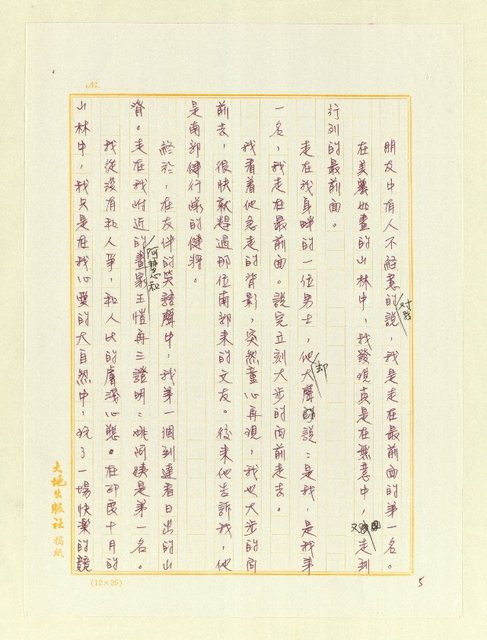 朋友中有人不經意的說，我是走在最前面的第一名。
在美麗如畫的山林中，我發現真是在無意中，又走到
行列的最前面。
走在我身畔的一位男士，他却大聲說：是我，是我第
一名，我走在最前面。說完立刻大步的向前走去。
我看着他急走的背影，突然童心再現，我也大步的向
前去，很快就趕過那位南部來的文友。後來他告訴我，他
是南部健行隊的健將。
終於，在友伴的笑語聲中，我第一個到達看日出的山
脊。走在我附近的畫家王愷再三證明：姚阿姨是第一名。
我從沒有和人爭，和人比的心態。在印度十月的
山林中，我只是在我心愛的大自然中，玩了一場快樂的競
大地出版社稿紙
(12×25)
5
No.